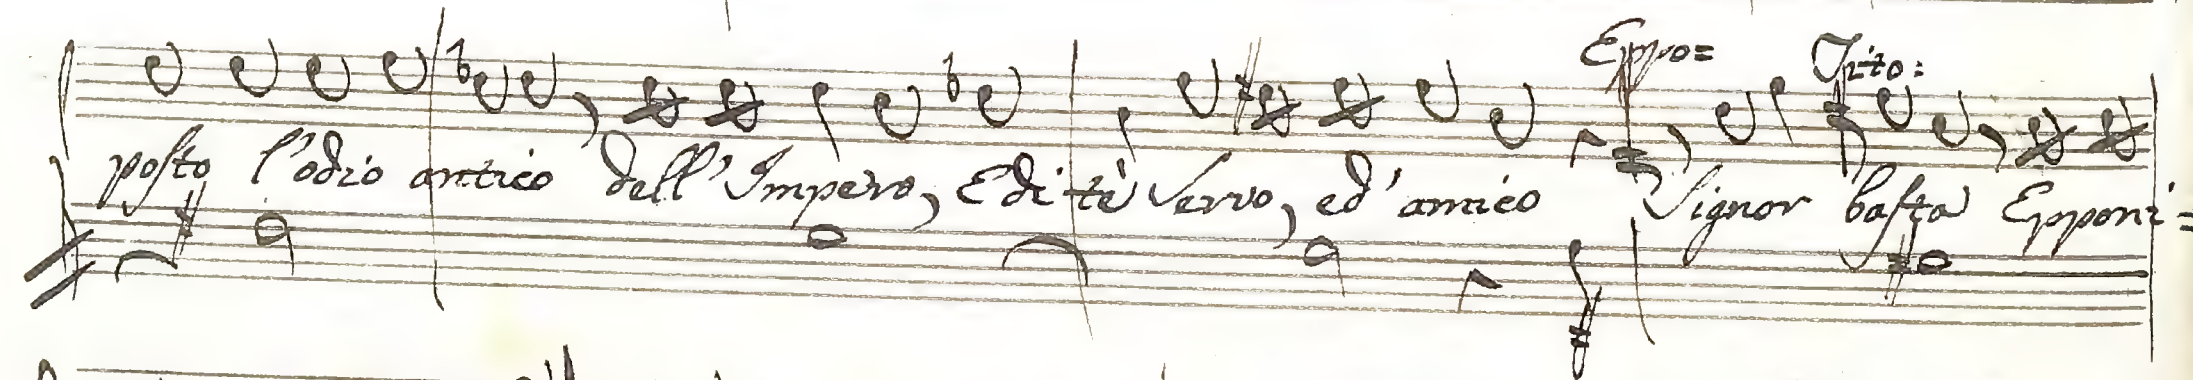 Eppo= Tito:
posto l'odio antico dell'Impero, E di te servo, ed'amico Signor basta Epponi=